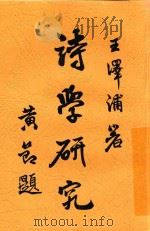 王澤浦著
詩學研究
黃節題